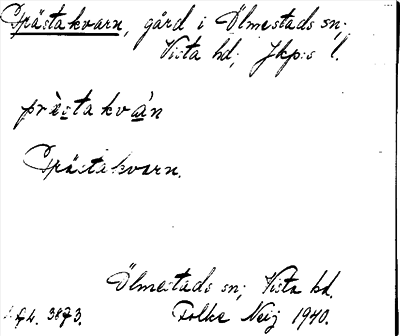 Prästakvarn, gård i Ölmestads sn;
Vista hd; Jkp:s l.
prèstakvá'n
Prästakvarn.
Ölmestads sn; Vista hd.
3873. Folke Neij 1940.